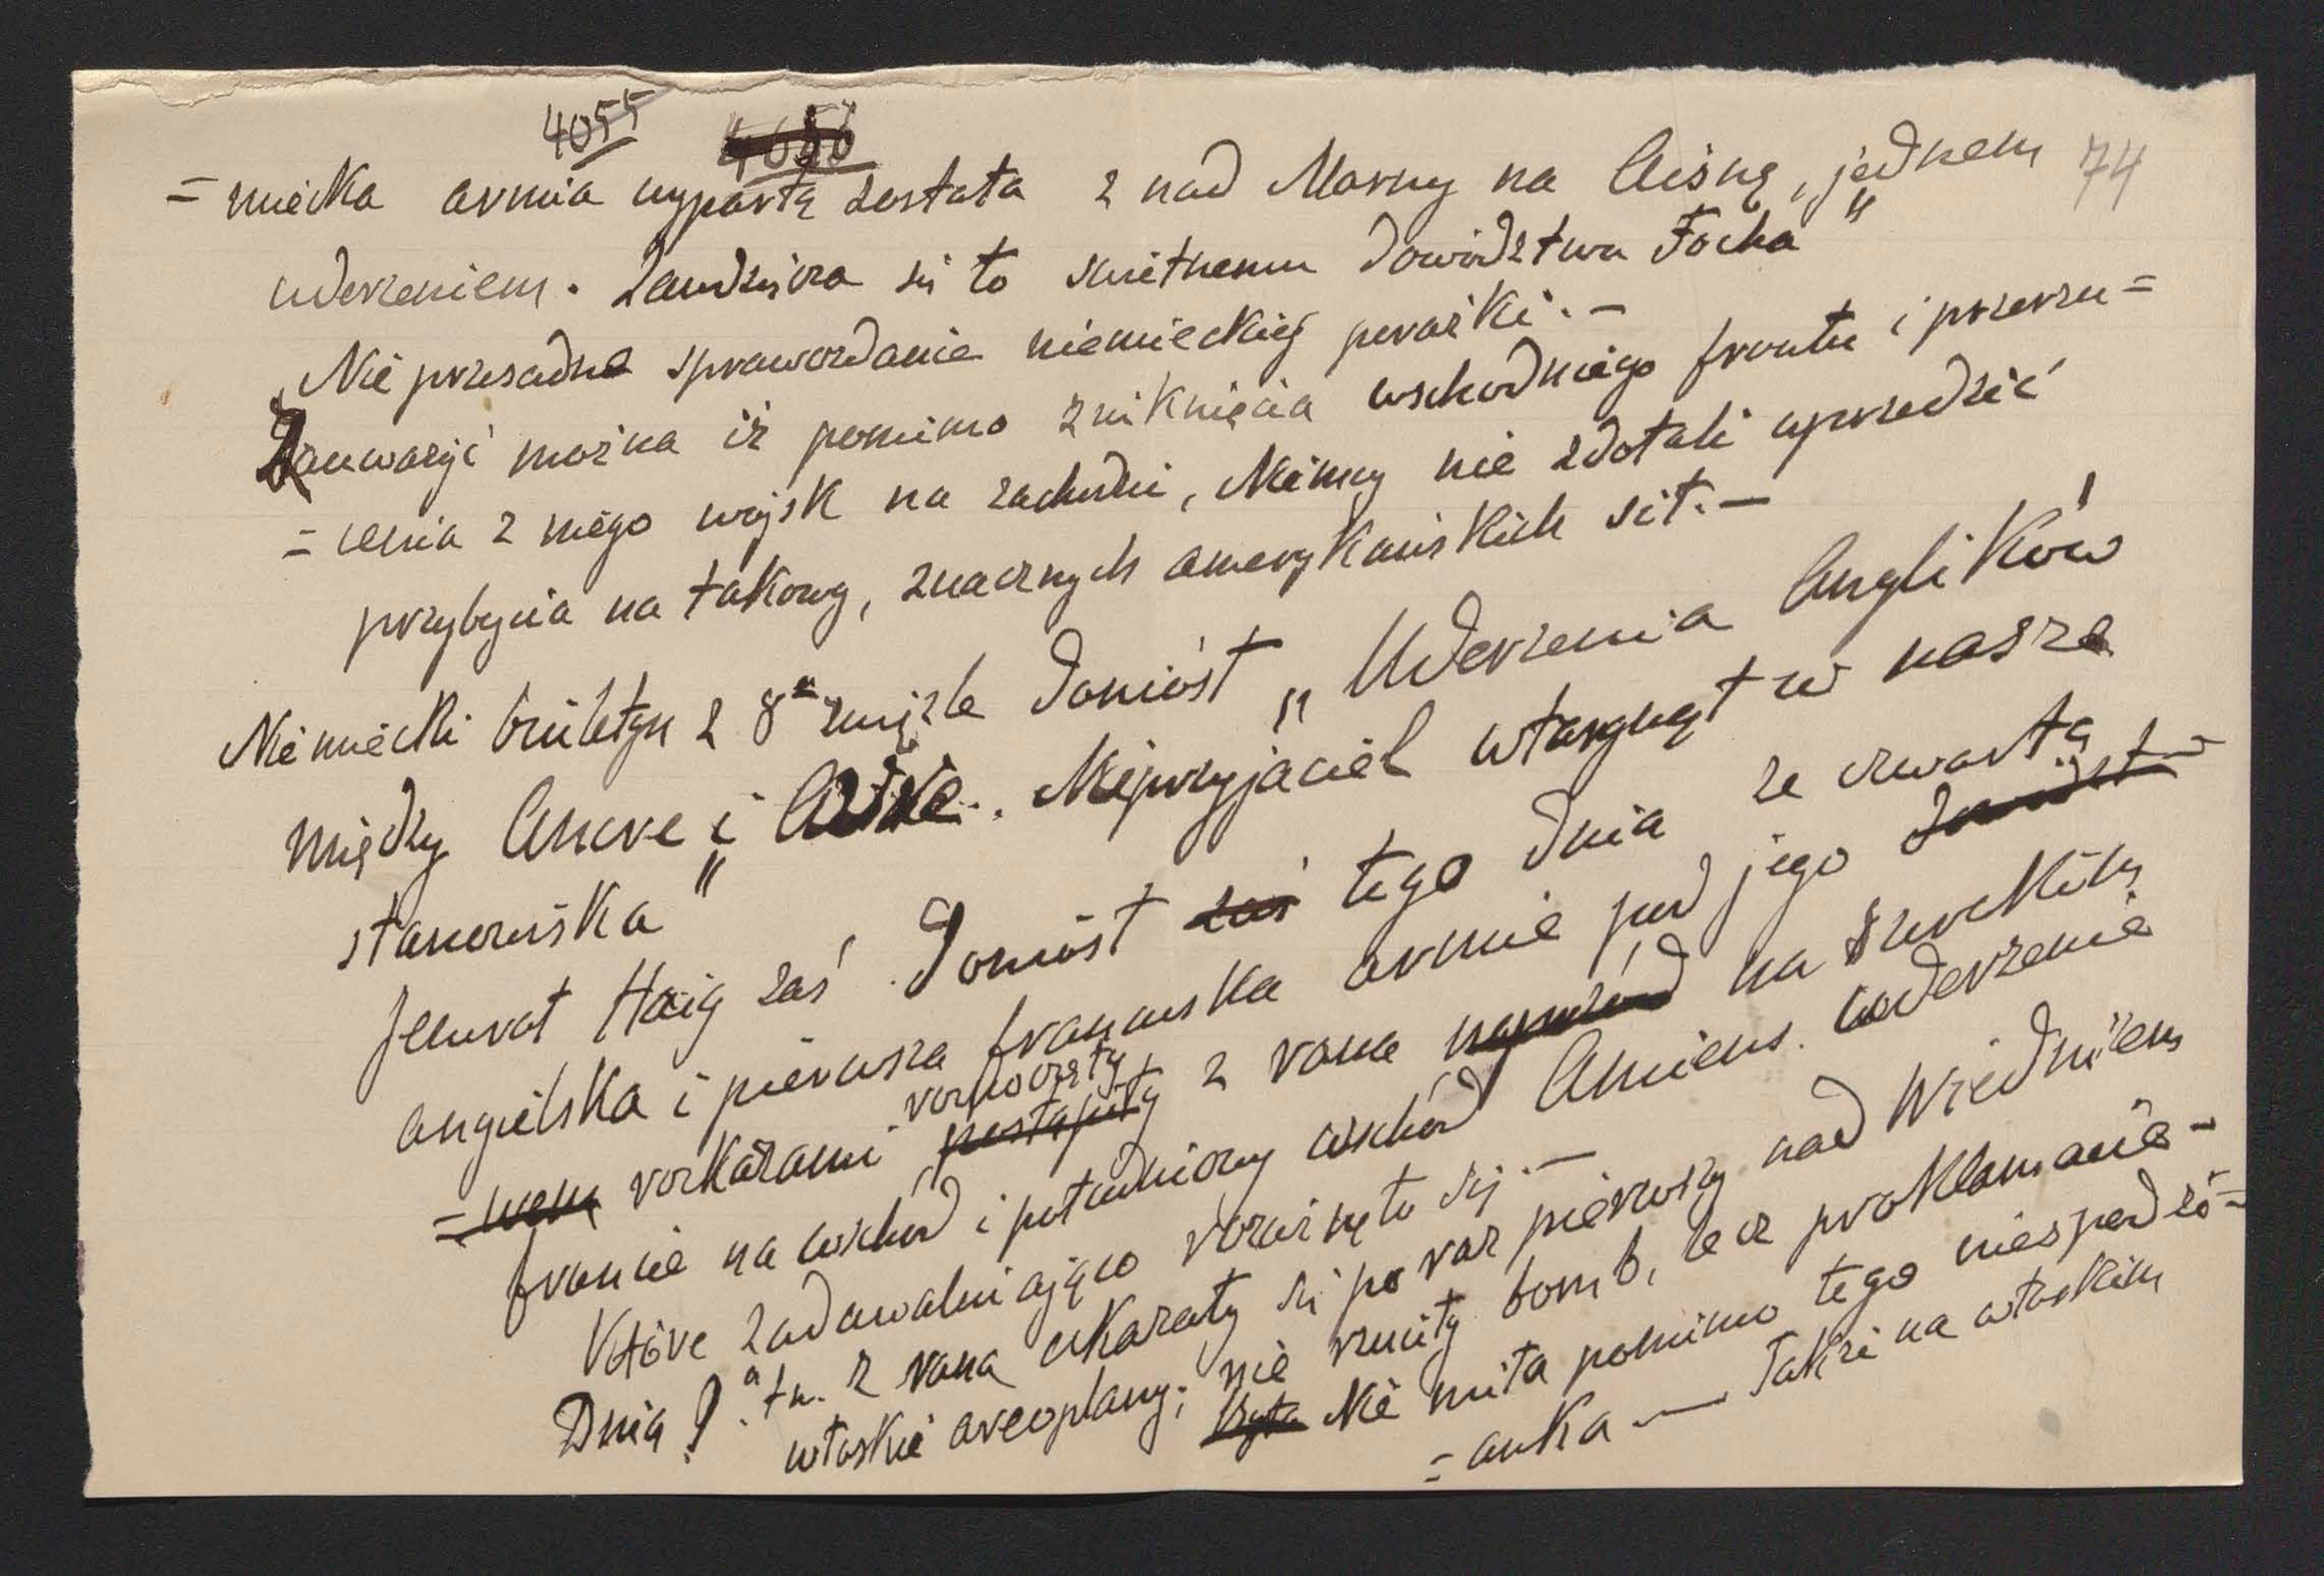 4055 4056
74
= miecka armia wypartą została z nad Marny na Aisnę, jednem
uderzeniem. Zawdzięcza się to świetnemu dowództwu Focha"
„Nie przesadne sprawozdanie niemieckiej porażki. —
Zauważyć można iż pomimo zniknięcia wschodniego frontu i przerzu=
= cenia z niego wojsk na zachodni, Niemcy nie zdołali uprzedzić
przybycia na takowy, znacznych amerykańskich sił. —
Niemiecki biuletyn z 8ᵃ zwięźle doniósł „Uderzenia Anglików
między Ancre i Avre. Nieprzyjaciel wtargnął w nasze
stanowiska"
Jenerał Haig zaś doniósł zaś tego dnia że czwarta
angielska i pierwsza francuska armie pod jego dowództ=
= wem rozkazami rozpoczęły
postąpiły z rana naprzód na szerokim
froncie na wschód i południowy wschód Amiens. uderzenie
które zadawalniająco rozwinęło się. —
Dnia 9.ᵃ t.m. z rana ukazały się po raz pierwszy nad Wiedniem
włoskie areoplany; nie rzuciły bomb, lecz proklamacie —
Była Nie miła pomimo tego niespodzi=
= anka — Także na włoskim